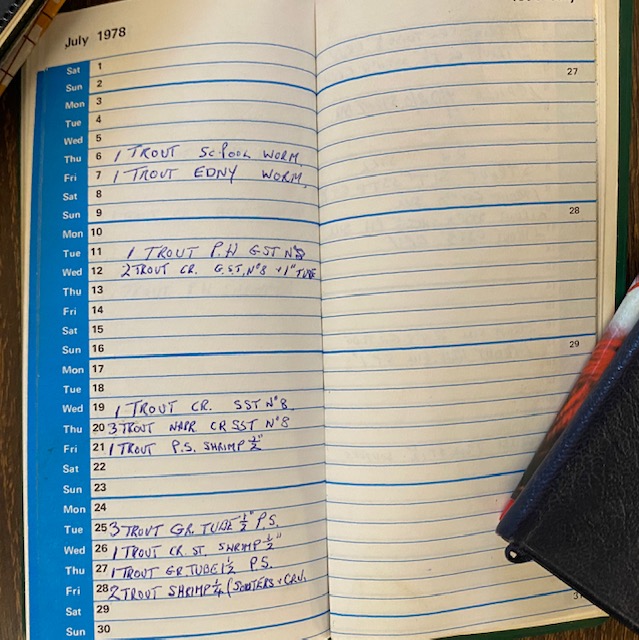 July 1978
Sat 1
27
Sun 2
Mon 3
Tue 4
Wed 5
Thu 6 1 TROUT Sc POOL WORM
Fri 7 1 TROUT EDNY WORM
Sat 8
Sun 9
28
Mon 10
Tue 11 1 TROUT P.H G.ST Nº8
Wed 12 2 TROUT CR. G.ST. Nº8 + 1" TUBE
Thu 13
Fri 14
Sat 15
Sun 16
29
Mon 17
Tue 18
Wed 19 1 TROUT CR. SST Nº8
Thu 20 3 TROUT CR SST Nº8
Fri 21 1 TROUT P.S. SHRIMP ½"
Sat 22
Sun 23
Mon 24
Tue 25 3 TROUT GR. TUBE ½" P.S.
Wed 26 1 TROUT CR. ST. SHRIMP ½"
Thu 27 1 TROUT GR. TUBE 1½ P.S.
Fri 28 2 TROUT SHRIMP ¼
Sat 29
Sun 30